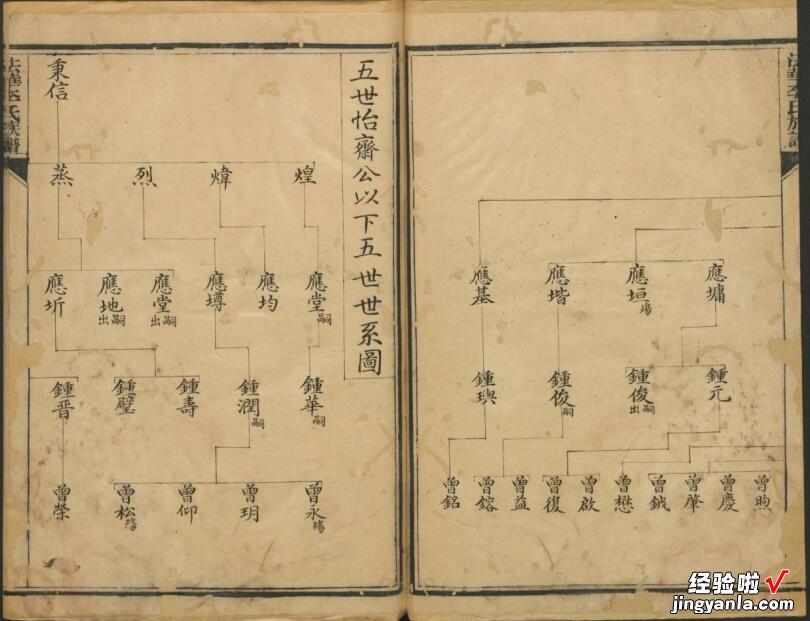 五世怡齋公以下五世世系圖
秉信
煌
煒
烈
蒸
應堂嗣
應均
應壿
應堂出嗣
應地出嗣
應圻
鍾華嗣
鍾潤嗣
鍾壽
鍾璧
鍾晋
曾永殤
曾玥
曾仰
曾松殤
曾榮
應墉
應垣殤
應堦
應基
鍾元
鍾俊出嗣
鍾俊嗣
鍾璵
曾煦
曾慶
曾肇
曾鉞
曾懋
曾啟
曾復
曾益
曾鎔
曾銘
法華李氏族譜
法華李氏族譜
经验啦√
jingyanla.com